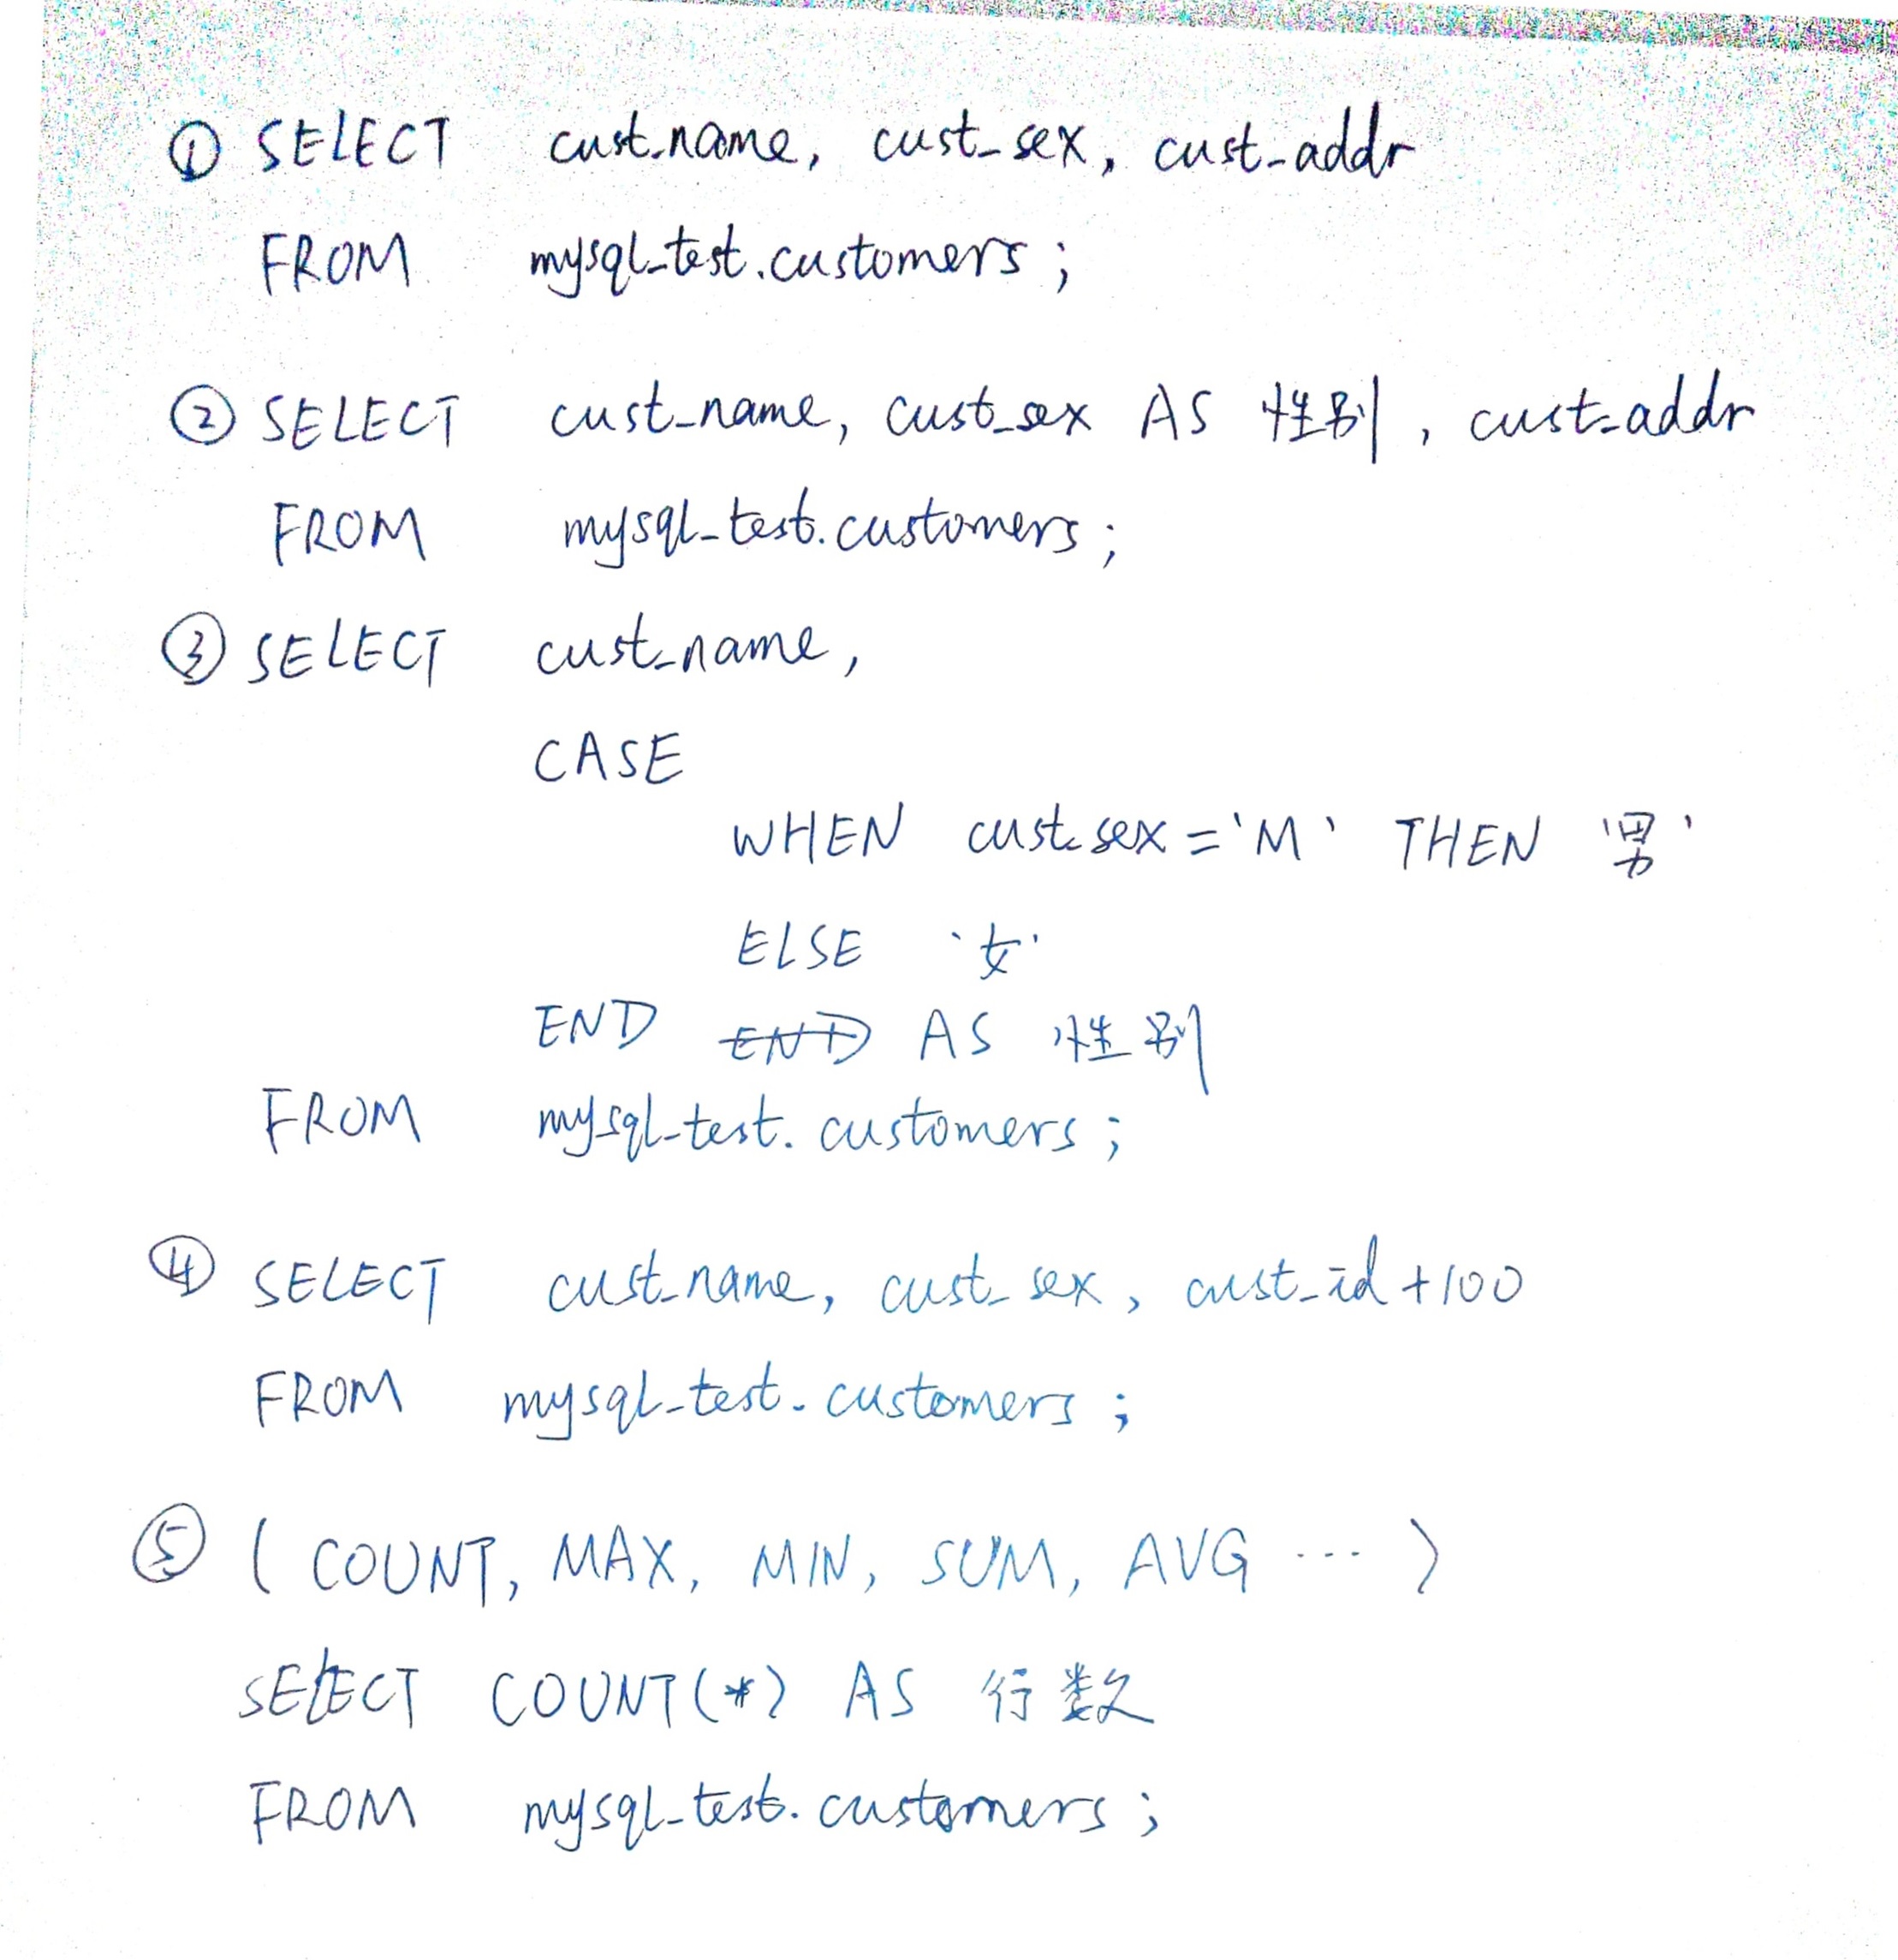 ① SELECT cust_name, cust_sex, cust_addr
FROM mysql_test.customers;
② SELECT cust_name, cust_sex AS 性别, cust_addr
FROM mysql_test.customers;
③ SELECT cust_name,
CASE
WHEN cust_sex='M' THEN '男'
ELSE '女'
END END AS 性别
FROM mysql_test.customers;
④ SELECT cust_name, cust_sex, cust_id+100
FROM mysql_test.customers;
⑤ (COUNT, MAX, MIN, SUM, AVG ...)
SELECT COUNT(*) AS 行数
FROM mysql_test.customers;